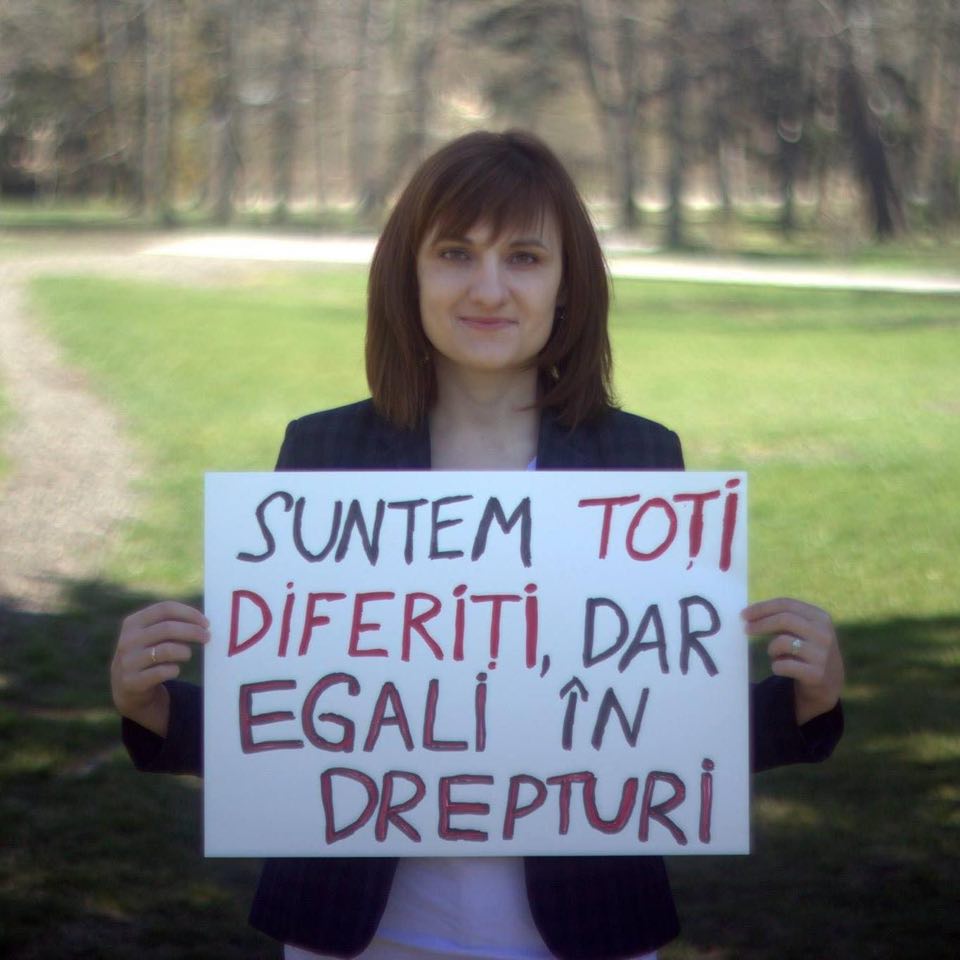 SUNTEM TOȚI
DIFERIȚI, DAR
EGALI ÎN
DREPTURI